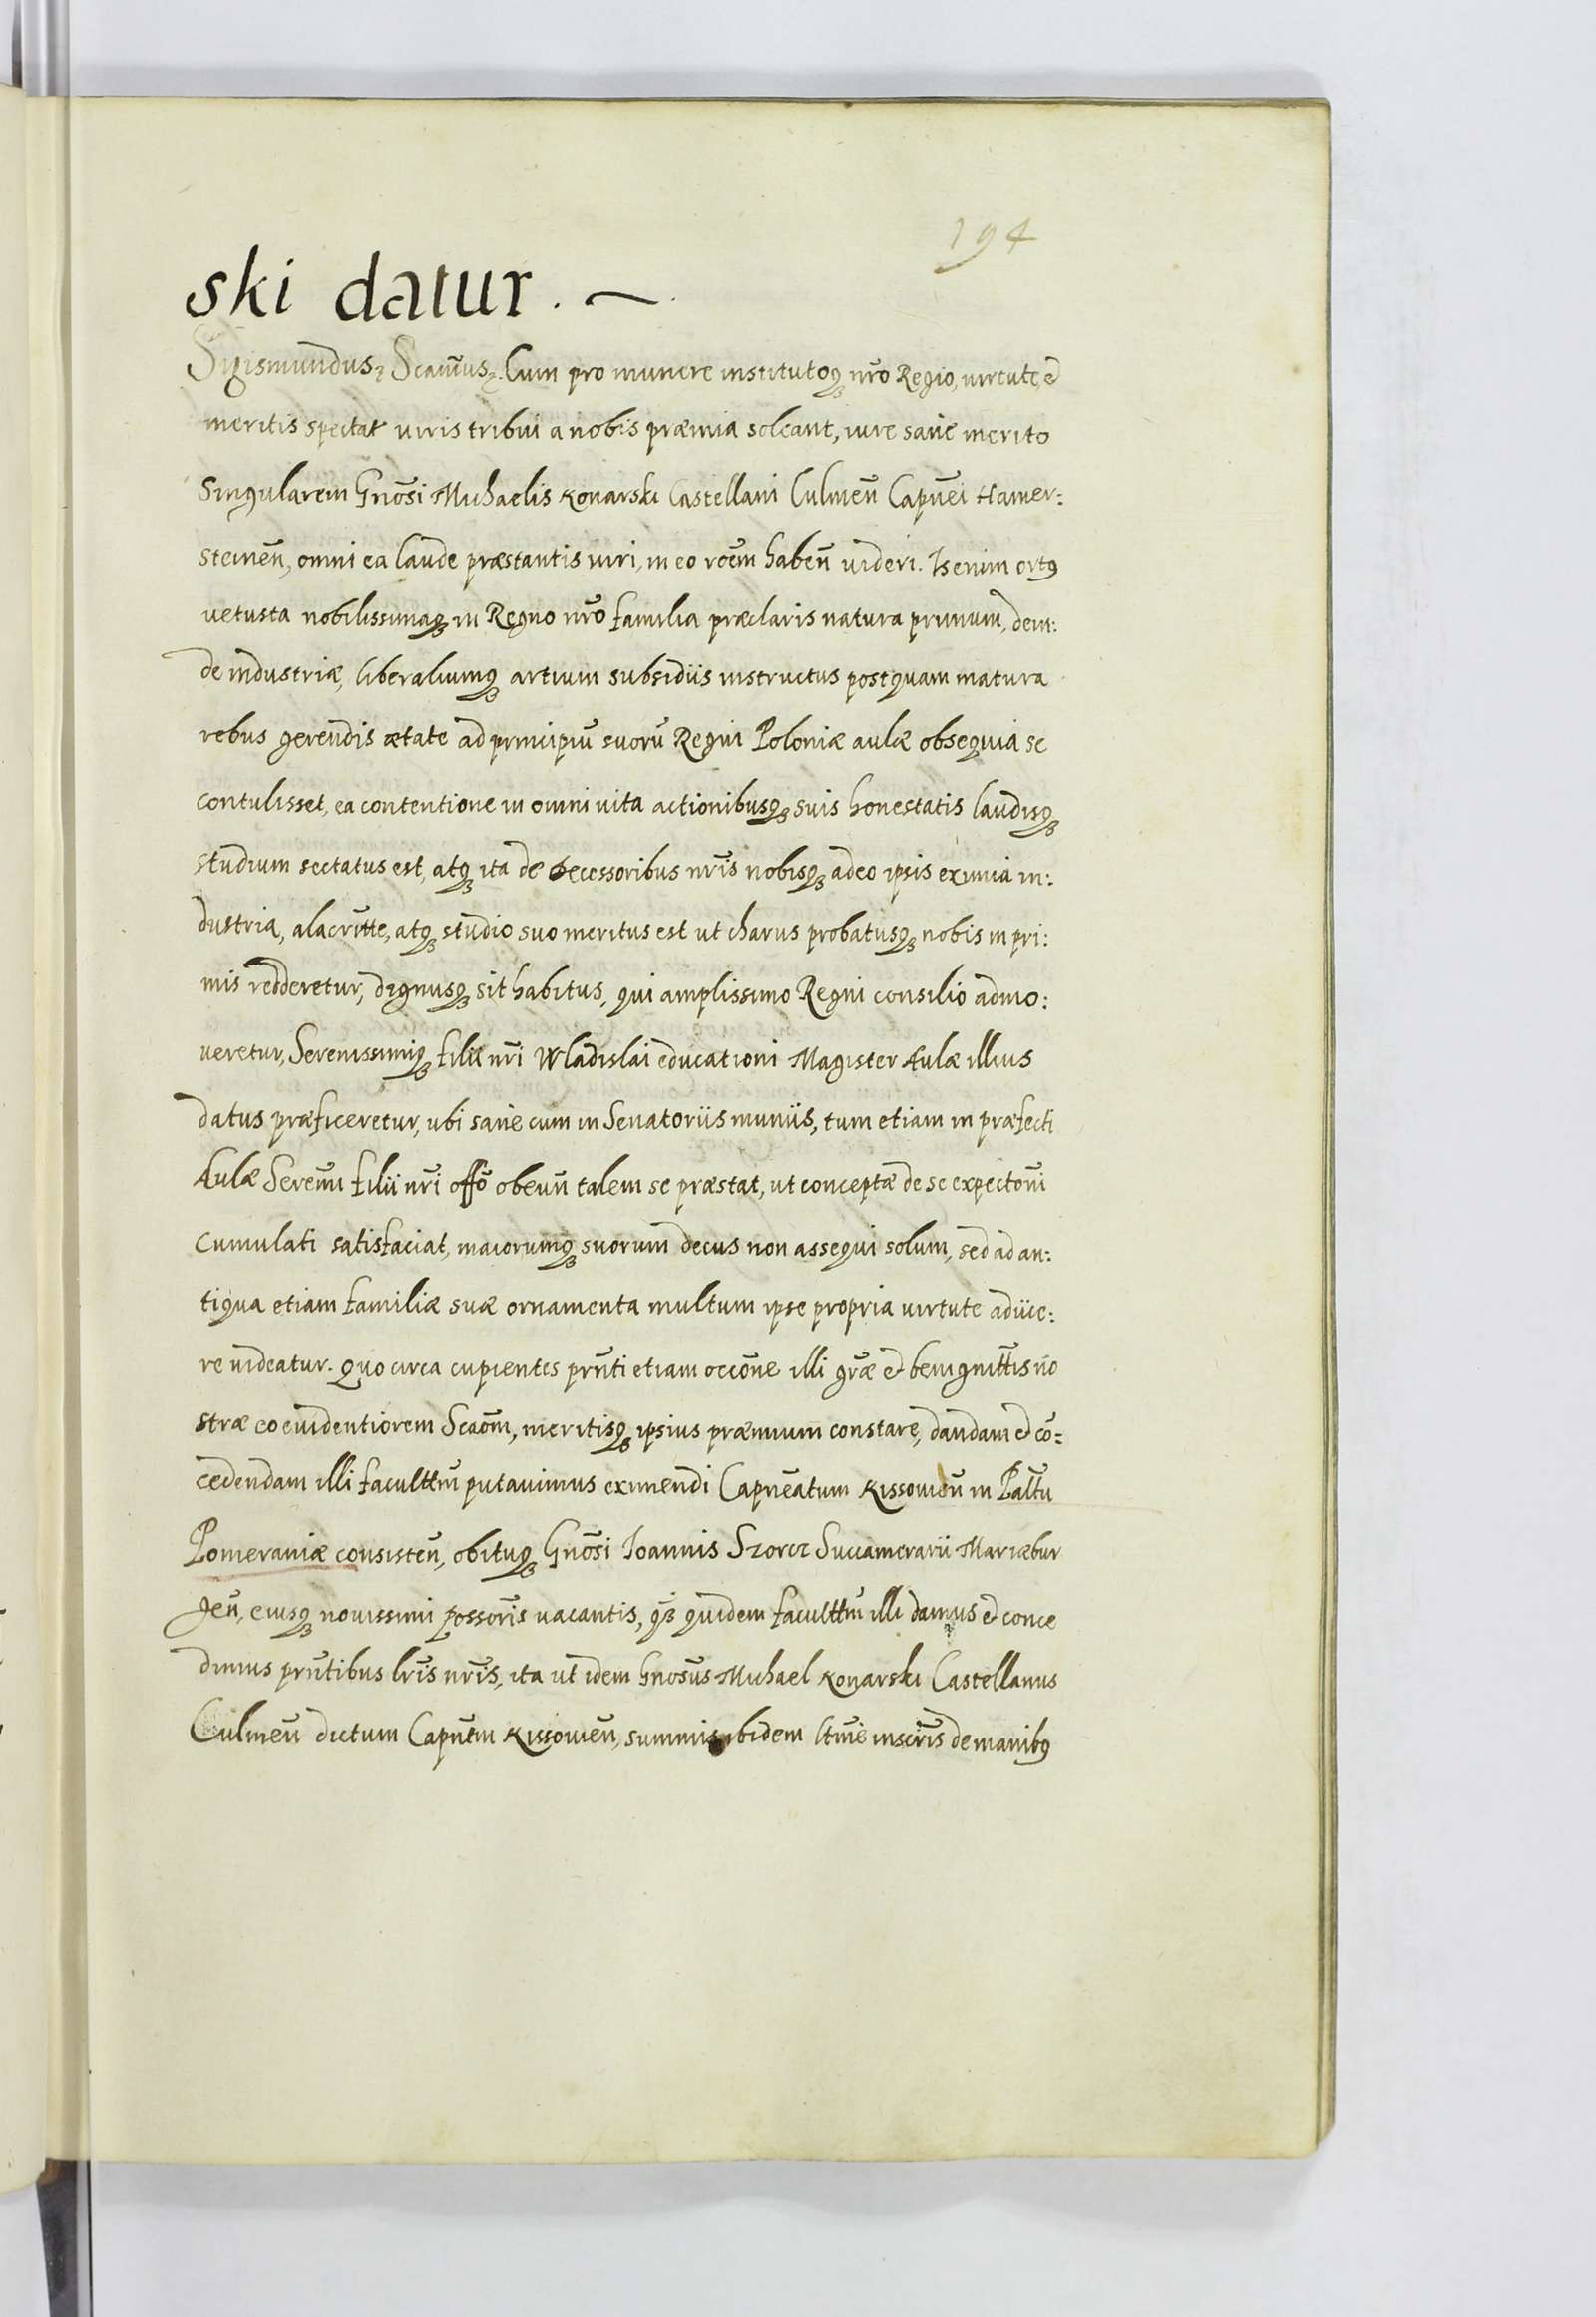 194
ski datur. ~.
Sigismundus ꝛ Scimus ꝛ. Cum pro munere institutoqꝫ nr̃o Regio, virtute, et
meritis spectat viris tribui a nobis præmia soleant, iure sane merito
singularem Gnõsi Michaelis Konarski Castellani Culmeñ Capñei Hamer:
steineñ, omni ea laude præstantis viri, in eo rõem habeñ videri. Is enim ortꝰ
vetusta nobilissimaqꝫ in Regno nr̃o familia præclaris natura primum, dein:
de industriæ, liberaliumqꝫ artium subsidiis instructus postquam matura
rebus gerendis ætate ad principiũ suorũ Regni Poloniæ aulæ obsequia se
contulisset, ea contentione in omni vita actionibusqꝫ suis honestatis laudisqꝫ
studium sectatus est, atqꝫ ita de decessoribus nr̃is nobisqꝫ adeo ipsis eximia in:
dustria, alacrit̃te, atqꝫ studio suo meritus est ut charus probatusqꝫ nobis in pri:
mis redderetur, dignusqꝫ sit habitus, qui amplissimo Regni consilio admo:
veretur, Serenissimiqꝫ filii nr̃i Wladislai educationi Magister Aulæ illius
datus præficeretur, ubi sane cum in Senatoriis muniis, tum etiam in præfecti
Aulæ Sereñmi filii nr̃i offõ obeuñ talem se præstat, ut conceptæ de se expectõni
cumulati satisfaciat, maiorumqꝫ suorum decus non assequi solum, sed ad an:
tiqua etiam familiæ suæ ornamenta multum ipse propria virtute adiice:
re videatur. Quo circa cupientes prñti etiam occõne illi gr̃æ et benignit̃tis nõ
stræ eo evidentiorem Scaõm, meritisqꝫ ipsius præmium constare, dandam et cõ:
cedendam illi facult̃tm putavimus eximendi Capñeatum Kissovieñ in Palt̃tu
Pomeraniæ consisteñ, obituqꝫ Gnõsi Ioannis Szorcz Succamerarii Mariæbur
geñ, eiusqꝫ novissimi possor̃is vacantis, qꝫ quidem facult̃tm illi damus et conce
dimus prñtibus lr̃is nr̃is, ita ut idem Gnosũs Michael Konarski Castellanus
Culmeñ dictum Capñtm Kissovieñ, summis ibidem ltm̃e inscr̃is de manibꝰ